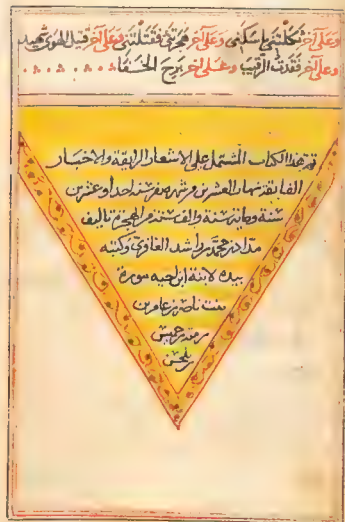 وعلى آخر شكلتني يا سكني وعلى آخر هجرتني فقتلتني وعلى آخر قتيل الهوى شهيد
وعلى آخر فقدت الرقيب وعلى آخر برح الخفا
تم هذا الكتاب المشتمل على الاشعار الرايقة والاخبار
الفايقة نهار العشرين من شهر صفر سنة احدا وعشرين
سنة ومايه سنة والف سنه من الهجرة تاليف
مداد بن محمد بن راشد الغافري وكتبه
بيده لابنة ابن اخيه سورة
بنت ناصر بن عامر بن
بن خميس